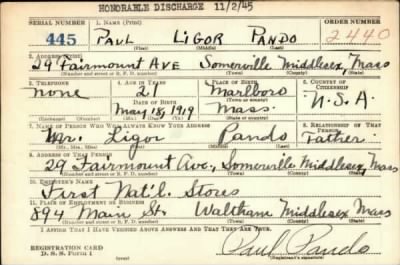 HONORABLE DISCHARGE 11/2/45
SERIAL NUMBER 1. NAME (Print) ORDER NUMBER
445 PAUL LIGOR PANDO 2440
(First) (Middle) (Last)
2. ADDRESS (Print)
29 Fairmount Ave Somerville Middlesex, Mass
(Number and street or R. F. D. number) (Town) (County) (State)
3. TELEPHONE 4. AGE IN YEARS 5. PLACE OF BIRTH 6. COUNTRY OF CITIZENSHIP
none 21 Marlboro
DATE OF BIRTH (Town or county)
May 18, 1919 Mass. U.S.A.
(Mo.) (Day) (Yr.) (State or country)
7. NAME OF PERSON WHO WILL ALWAYS KNOW YOUR ADDRESS 8. RELATIONSHIP OF THAT PERSON
Mr. Ligor Pando Father
(Mr., Mrs., Miss) (First) (Middle) (Last)
9. ADDRESS OF THAT PERSON
29 Fairmount Ave., Somerville Middlesex, Mass
(Number and street or R. F. D. number) (Town) (County) (State)
10. EMPLOYER'S NAME
First Nat'l. Stores
11. PLACE OF EMPLOYMENT OR BUSINESS
894 Main St. Waltham Middlesex Mass
(Number and street or R. F. D. number) (Town) (County) (State)
I AFFIRM THAT I HAVE VERIFIED ABOVE ANSWERS AND THAT THEY ARE TRUE.
REGISTRATION CARD
D. S. S. Form 1 Paul Pando
(Registrant's signature)